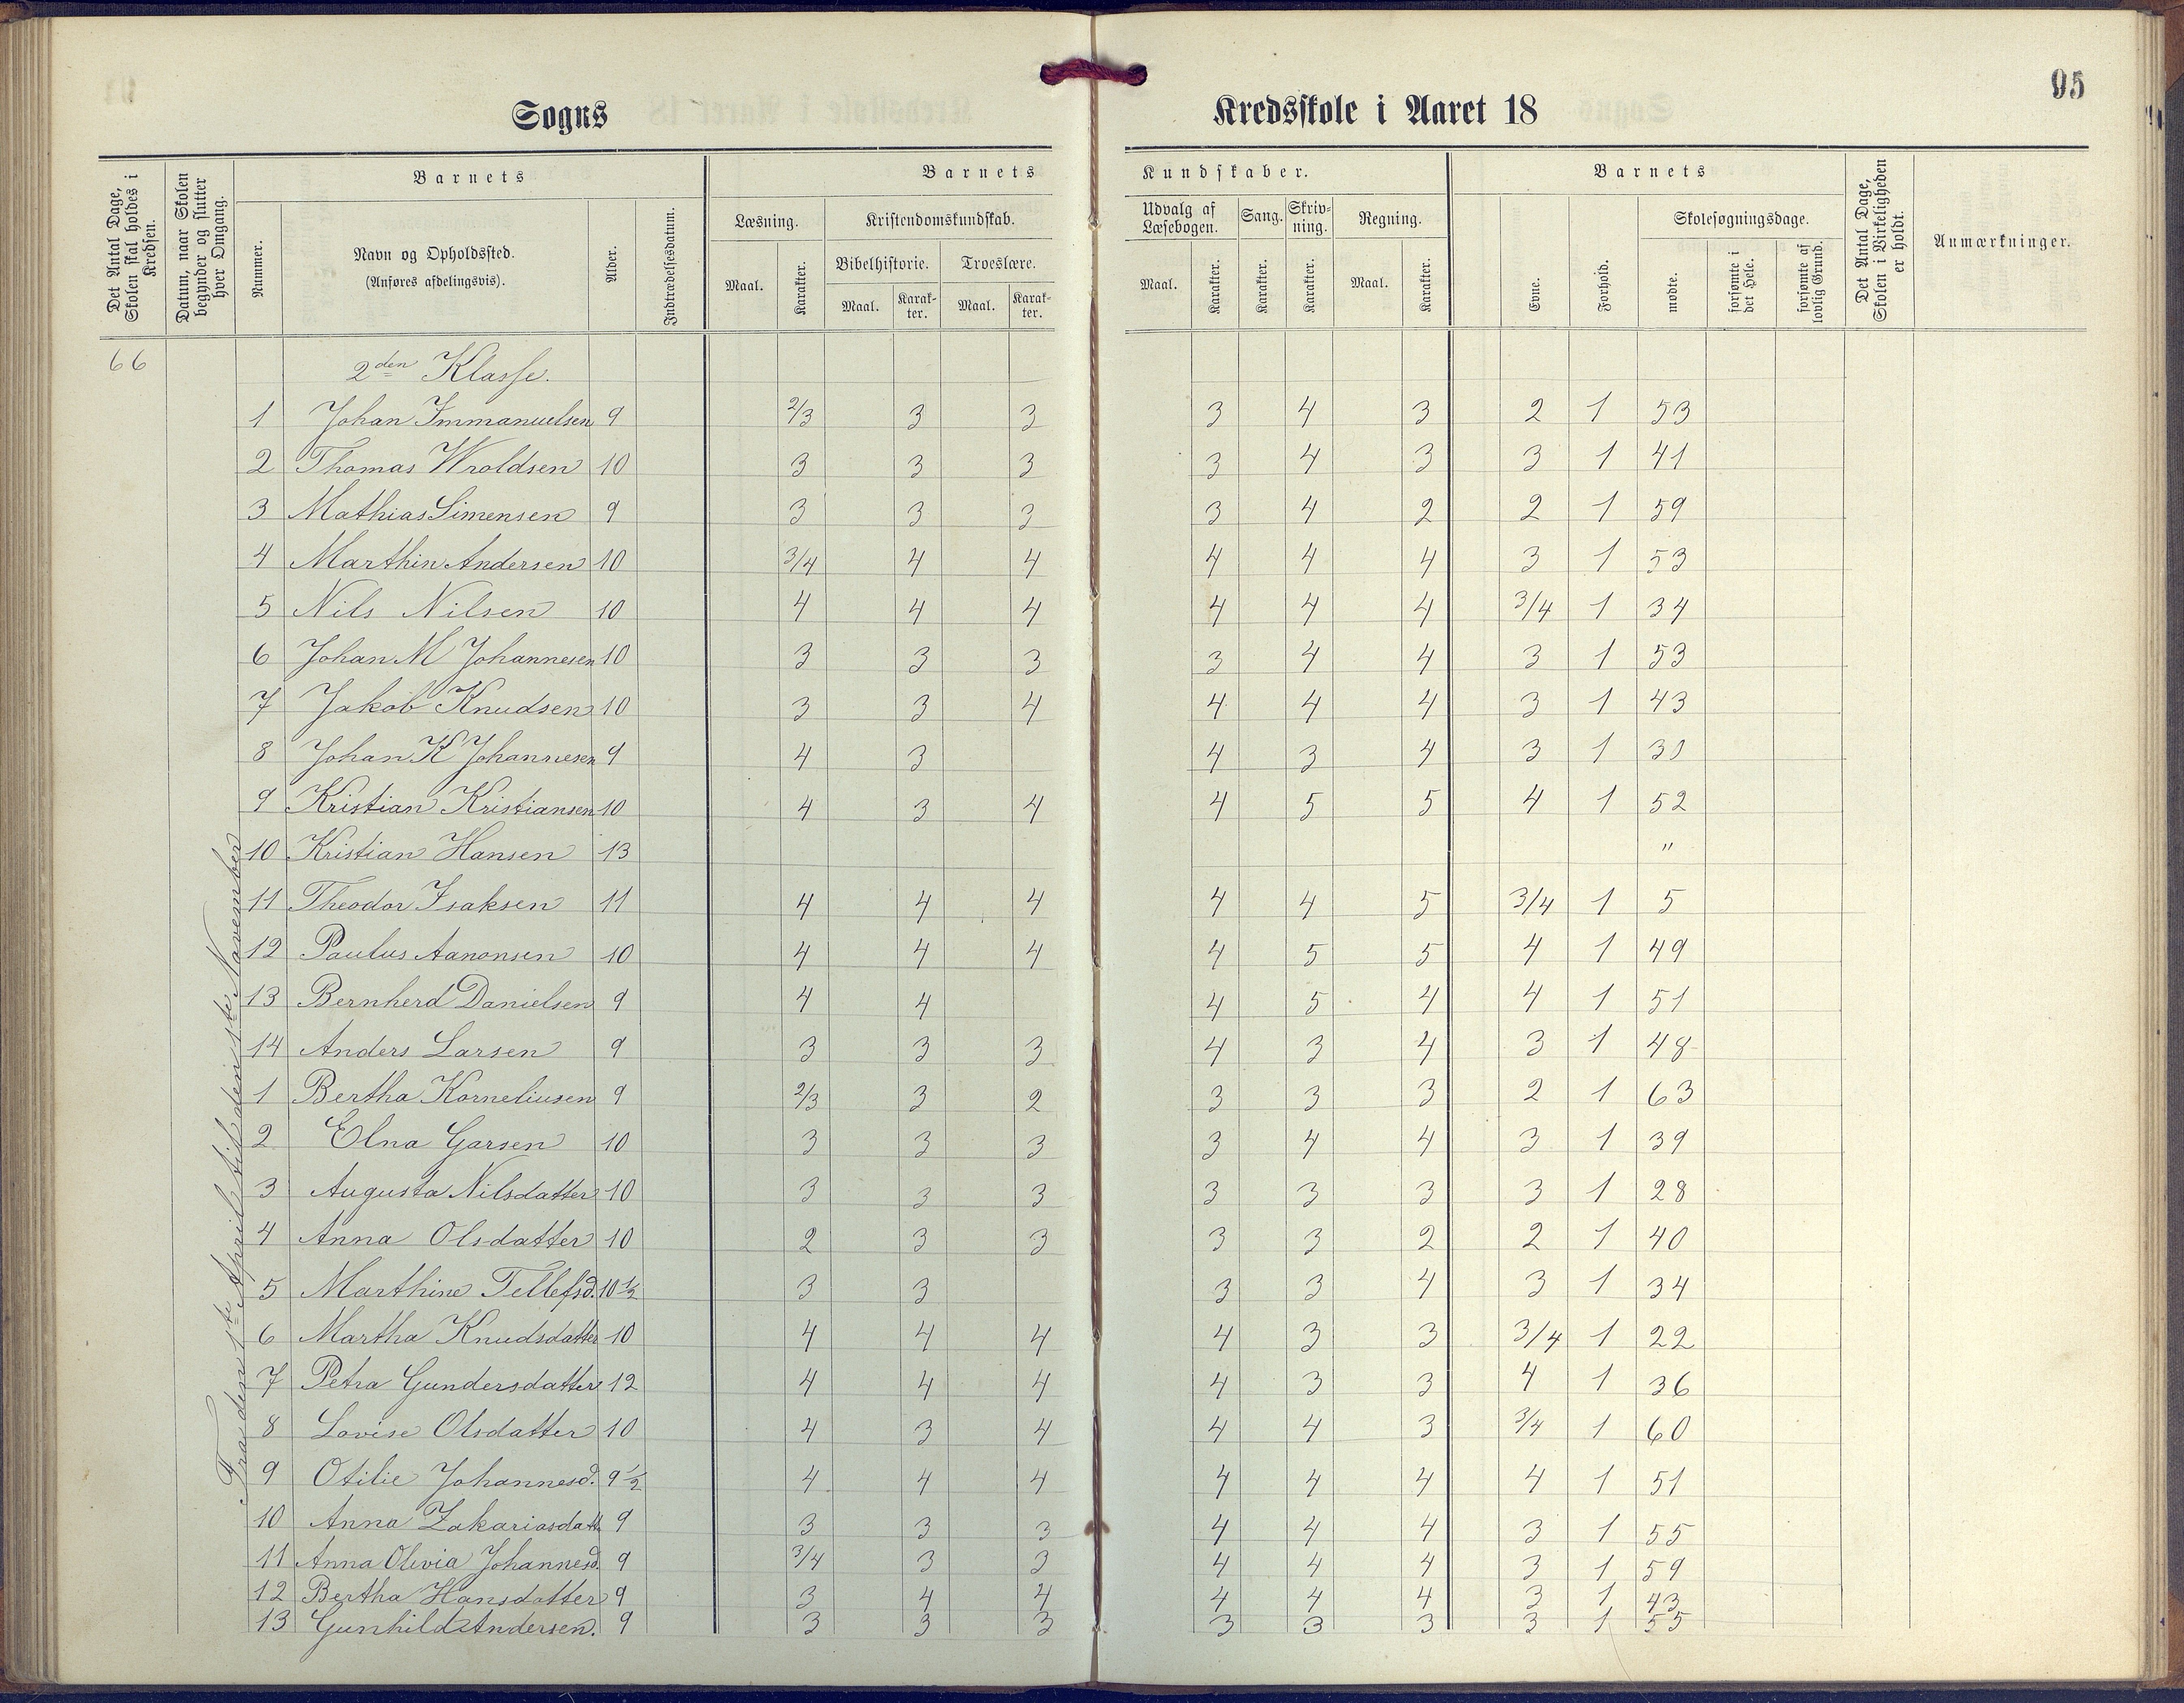 95
Sogns Kredsskole i Aaret 18
Det Antal Dage, Skolen skal holdes i Kredsen.
Datum, naar Skolen begynder og slutter hver Omgang.
Barnets
Nummer.
Navn og Opholdssted.
(Anføres afdelingsvis).
Alder.
Indtrædelsesdatum.
Barnets Kundskaber.
Læsning.
Maal. Karakter.
Kristendomskundskab.
Bibelhistorie. Troeslære.
Maal. Karakter. Maal. Karakter.
Udvalg af Læsebogen.
Maal. Karakter.
Sang.
Karakter.
Skrivning.
Karakter.
Regning.
Maal. Karakter.
Barnets
Evne. Forhold.
Skolesøgningsdage.
mødte. forsømte i det Hele. forsømte af lovlig Grund.
Det Antal Dage, Skolen i Virkeligheden er holdt.
Anmærkninger.
66
Fra den 1ste April til den 1ste November
2den Klasse.
1 Johan Immanuelsen 9 2/3 3 3 3 4 3 2 1 53
2 Thomas Wroldsen 10 3 3 3 3 4 3 3 1 41
3 Mathias Simensen 9 3 3 3 3 4 2 2 1 59
4 Marthin Andersen 10 3/4 4 4 4 4 4 3 1 53
5 Nils Nilsen 10 4 4 4 4 4 4 3/4 1 34
6 Johan M Johannesen 10 3 3 3 3 4 4 3 1 53
7 Jakob Knudsen 10 3 3 4 4 4 4 3 1 43
8 Johan K Johannesen 9 4 3 4 3 4 3 1 30
9 Kristian Kristiansen 10 4 3 4 4 5 5 4 1 52
10 Kristian Hansen 13 "
11 Theodor Isaksen 11 4 4 4 4 4 5 3/4 1 5
12 Paulus Aanonsen 10 4 4 4 4 5 5 4 1 49
13 Bernherd Danielsen 9 4 4 4 5 4 4 1 51
14 Anders Larsen 9 3 3 3 4 3 4 3 1 48
1 Bertha Korneliusen 9 2/3 3 2 3 3 3 2 1 63
2 Elna Garsen 10 3 3 3 3 4 4 3 1 39
3 Augusta Nilsdatter 10 3 3 3 3 3 3 3 1 28
4 Anna Olsdatter 10 2 3 3 3 3 2 2 1 40
5 Marthine Tellefsd. 10 1/2 3 3 3 3 4 3 1 34
6 Martha Knudsdatter 10 4 4 4 4 3 3 3/4 1 22
7 Petra Gundersdatter 12 4 4 4 4 3 3 4 1 36
8 Lovise Olsdatter 10 4 3 4 4 4 3 3/4 1 60
9 Otilie Johannesd. 9 1/2 4 4 4 4 4 4 4 1 51
10 Anna Zakariasdatt. 9 3 3 3 4 4 4 3 1 55
11 Anna Olivia Johannesd. 9 3/4 3 3 4 4 4 3 1 59
12 Bertha Hansdatter 9 3 4 4 4 4 4 3 1 43
13 Gunhild Andersen. 9 3 3 3 3 3 3 3 1 55